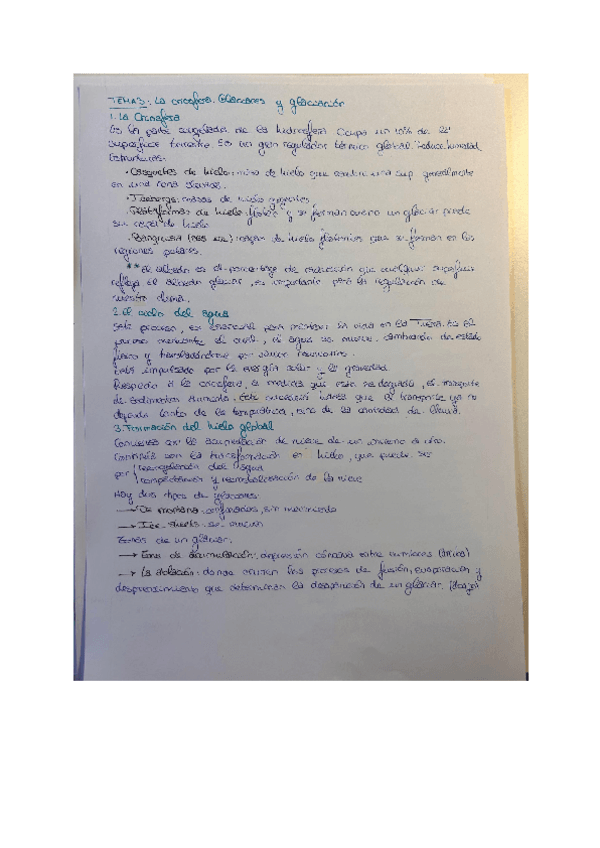 TEMA 3: La criosfera. Glaciares y glaciación
1. La Criosfera
Es la parte congelada de la hidrosfera. Ocupa un 10% de la
superficie terrestre. Es un gran regulador térmico global.
Estructuras:
· Casquetes de hielo: masa de hielo que cubre una sup. generalmente
en una zona
· Icebergs: masas de hielo
· Plataformas de hielo: y se forman cuando un glaciar pierde
su capa de hielo
· Banquisa: de hielo que se forman en las
regiones polares.
** El albedo es el porcentaje de radiación que cualquier superficie
refleja. El albedo glaciar, es importante para la regulación de
nuestro clima.
2. El ciclo del agua
Este proceso, es esencial para mantener la vida en la Tierra. Es el
proceso mediante el cual, el agua se mueve cambiando de estado
físico y trasladándose por
Está impulsado por la energía solar y la gravedad.
Respecto a la criosfera, a medida que esta se , el transporte
de sedimentos aumenta. que el transporte ya no
depende tanto de la temperatura, sino de la cantidad de lluvia.
3. Formación del hielo global
Comienza con la acumulación de nieve de un invierno a otro.
Continúa con la transformación en hielo, que puede ser
por recongelación del agua
compactación y recristalización de la nieve
Hay dos tipos de glaciares:
→ De montaña: confinados, sin movimiento
→ Ice-sheets:
Zonas de un glaciar:
→ Zona de acumulación: depresión cóncava entre
→ La ablación: donde ocurren los procesos de fusión, evaporación y
desprendimiento que determinan la desaparición de un glaciar.